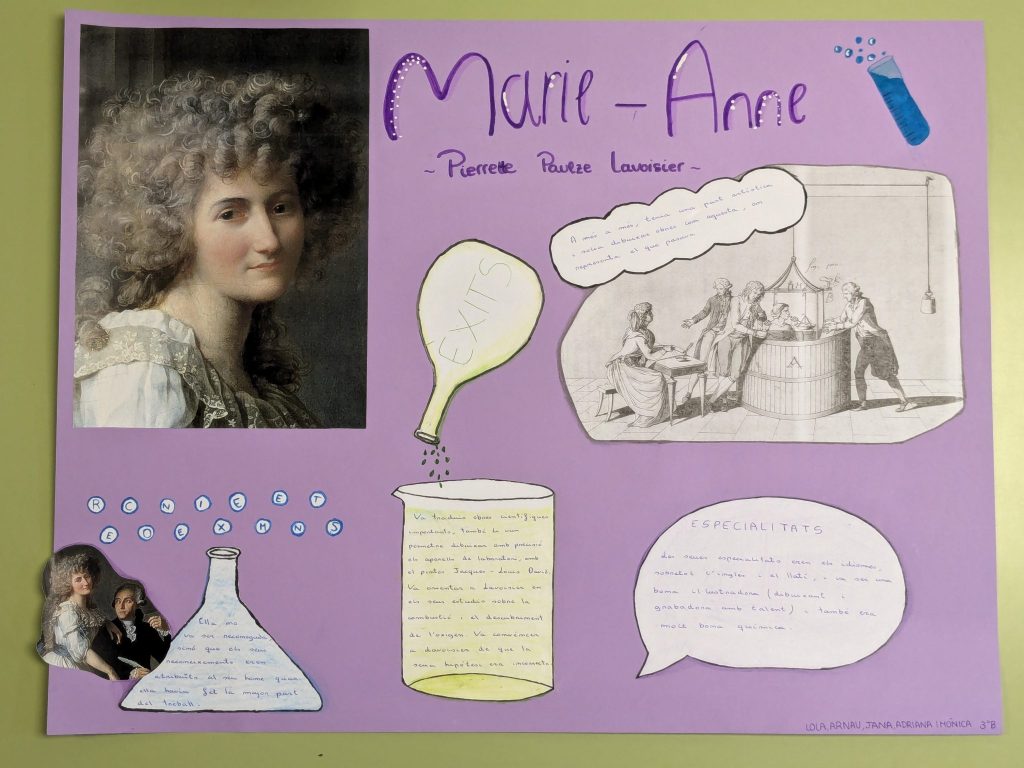 Marie - Anne
~ Pierrette Paulze Lavoisier ~
A més a més, tenia una part artística
i solia dibuixar obres com aquesta, on
representa el que passava
ÈXITS
A
R C N I E E T
E O E X M N S
Ella no
va ser reconeguda
sinó que els seus
reconeixements eren
atribuïts al seu home quan
ella havia fet la major part
del treball.
Va traduir obres científiques
importants, també le van
permetre dibuixar amb precisió
els aparells de laboratori, amb
el pintor Jacques - Louis David.
Va orientar a Lavoisier en
els seus estudis sobre la
combustió i el descobriment
de l'oxigen. Va convèncer
a Lavoisier de que la
seva hipòtesi era incorrecta.
ESPECIALITATS
Les seues especialitats eren els idiomes,
sobretot l'anglès i el llatí, i va ser una
bona il·lustradora (dibuixant i
grabadora amb talent) i també era
molt bona química.
LOLA, ARNAU, JANA, ADRIANA i MÒNICA 3ºB